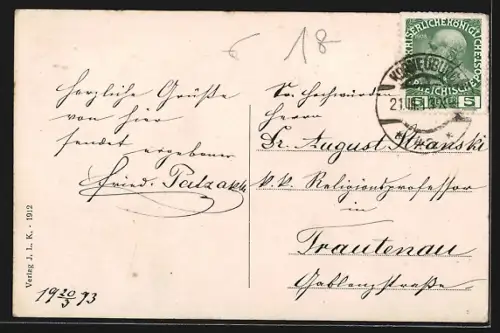 18
Herzliche Grüße
von hier
sendet ergebener
Fried.
19 20/3 13
Verlag J. L. K. - 1912
KAISERLICHE KÖNIGLICHE ÖSTERREICHISCHE
5
KORNEUBURG
21.III.1
Sr. Hochwürden
Herrn
Dr. August
k. k. Religionsprofessor
in
Trautenau
Gablenzstraße